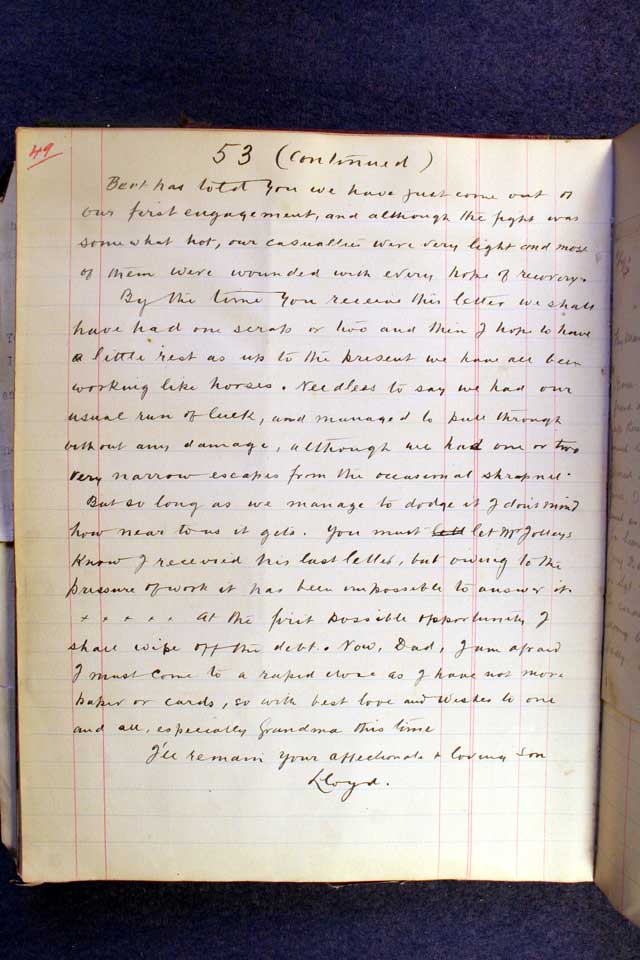 49
53 (continued)
Bert has told you we have just come out of
our first engagement, and although the fight was
somewhat hot, our casualties were very light and most
of them were wounded with every hope of recovery.
By the time you receive this letter we shall
have had one scrap or two and then I hope to have
a little rest as up to the present we have all been
working like horses. Needless to say we had our
usual run of luck, and managed to pull through
without any damage, although we had one or two
very narrow escapes from the occasional shrapnel.
But so long as we manage to dodge it I don't mind
how near to us it gets. You must let Mr Jolleys
know I received his last letter, but owing to the
pressure of work it has been impossible to answer it.
x x x x x At the first possible opportunity I
shall wipe off the debt. Now, Dad, I am afraid
I must come to a rapid close as I have not more
paper or cards, so with best love and wishes to one
and all, especially Grandma this time
I'll remain your affectionate & loving son
Lloyd.